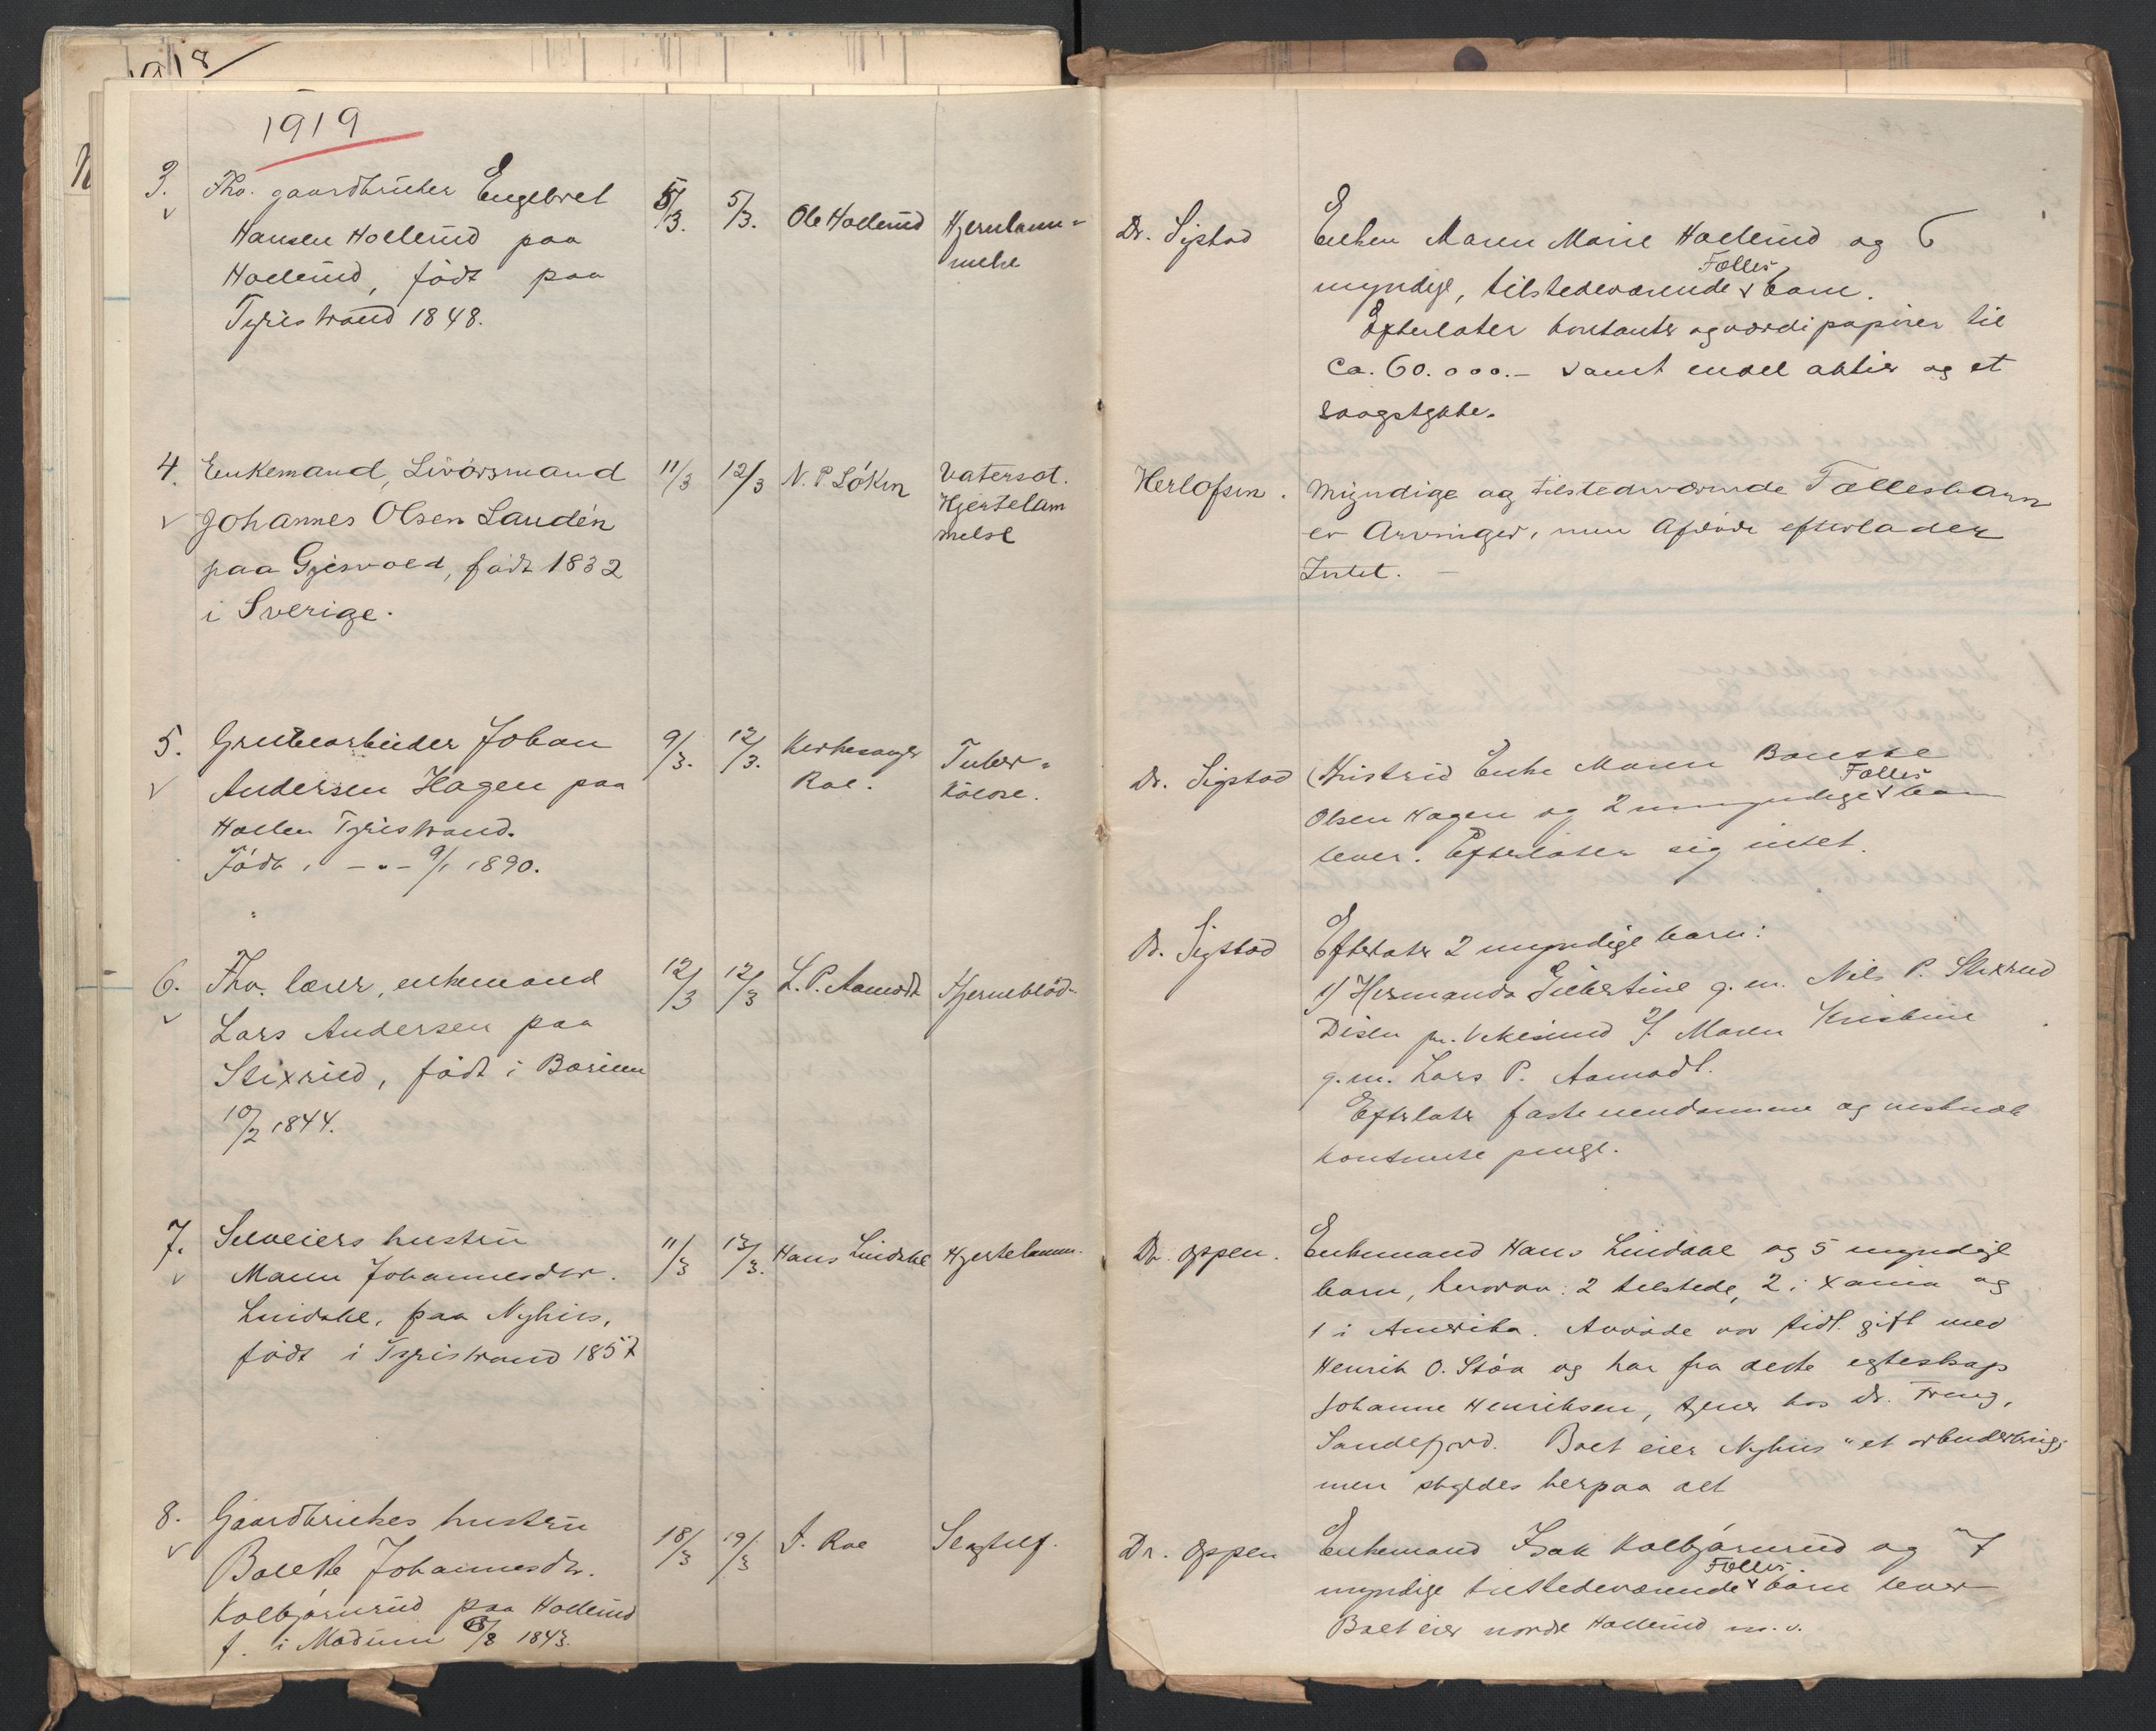 1918
1919
3. Fhv. gaardbruker Engebret
Hansen Hollerud paa
Hollerud, født paa
Tyristrand 1848.
5/3. 5/3. Ole Hollerud
Hjernlam=
melse
Dr. Sigstad
Enken Maren Marie Hollerud og 6
myndige, tilstedeværende Fælles barn.
Efterlater kontanter og værdipapirer til
ca. 60.000.- samt endel aktier og et
4. Enkemand, Livørsmand
Johannes Olsen Laudén
paa Gjesvold, født 1832
i Sverige.
11/3 12/3 N. P Løken
Vatersot.
Hjertelam
melse
Herlofsen.
Myndige og tilstedeværende Fællesbarn
er Arvinger, men Afdøde efterlader
Intet.
5. Grubearbeider Johan
Andersen Hagen paa
Hollen Tyristrand.
Født i - " - 9/1 1890.
9/3. 12/3. Kirkesanger
Roe.
Tuber=
kulose.
Dr. Sigstad
Enke Maren
Olsen Hagen og 2 umyndige Fælles barn
lever. Efterlater sig intet.
6. Fhv. lærer, enkemand
Lars Andersen paa
Stixrud, født i Bærum
10/2 1844.
12/3 12/3 L. P. Aamodt
Hjerneblød-
Dr. Sigstad
Efterlater 2 myndige barn:
1) Hermanda Gilbertine g. m. Nils P. Stixrud
Disen pr. Vikersund 2. Maren Kristine
g. m. Lars P. Aamodt.
Efterlater faste eiendomme og
kontante penge.
7. Selveiers hustru
Maren Johannesdtr.
Lindahl, paa Nyhus,
født i Tyristrand 1857
11/3 13/3. Hans Lindahl Hjertelamm.
Dr. Oppen.
Enkemand Hans Lindahl og 5 myndige
barn, hvorav: 2 tilstede, 2 i Xania og
1 i Amerika. Avdøde var tidl. gift med
Henrik O. Støa og har fra dette egteskap
Johanne Henriksen, tjener hos Dr. Freng,
Sandefjord. Boet eier Nyhus " et arbeiderbrug,
men skyldes herpaa alt
8. Gaardbrukers hustru
Bolette Johannesdtr.
Kolbjørnrud paa Hollerud
f. i Modum /8 1843.
18/3 19/3 J. Roe
Slagtilf.
Dr. Oppen
Enkemand Isak Kolbjørnrud og 7
myndige tilstedeværende Fælles barn lever
Boet eier nordre Hollerud m. v.